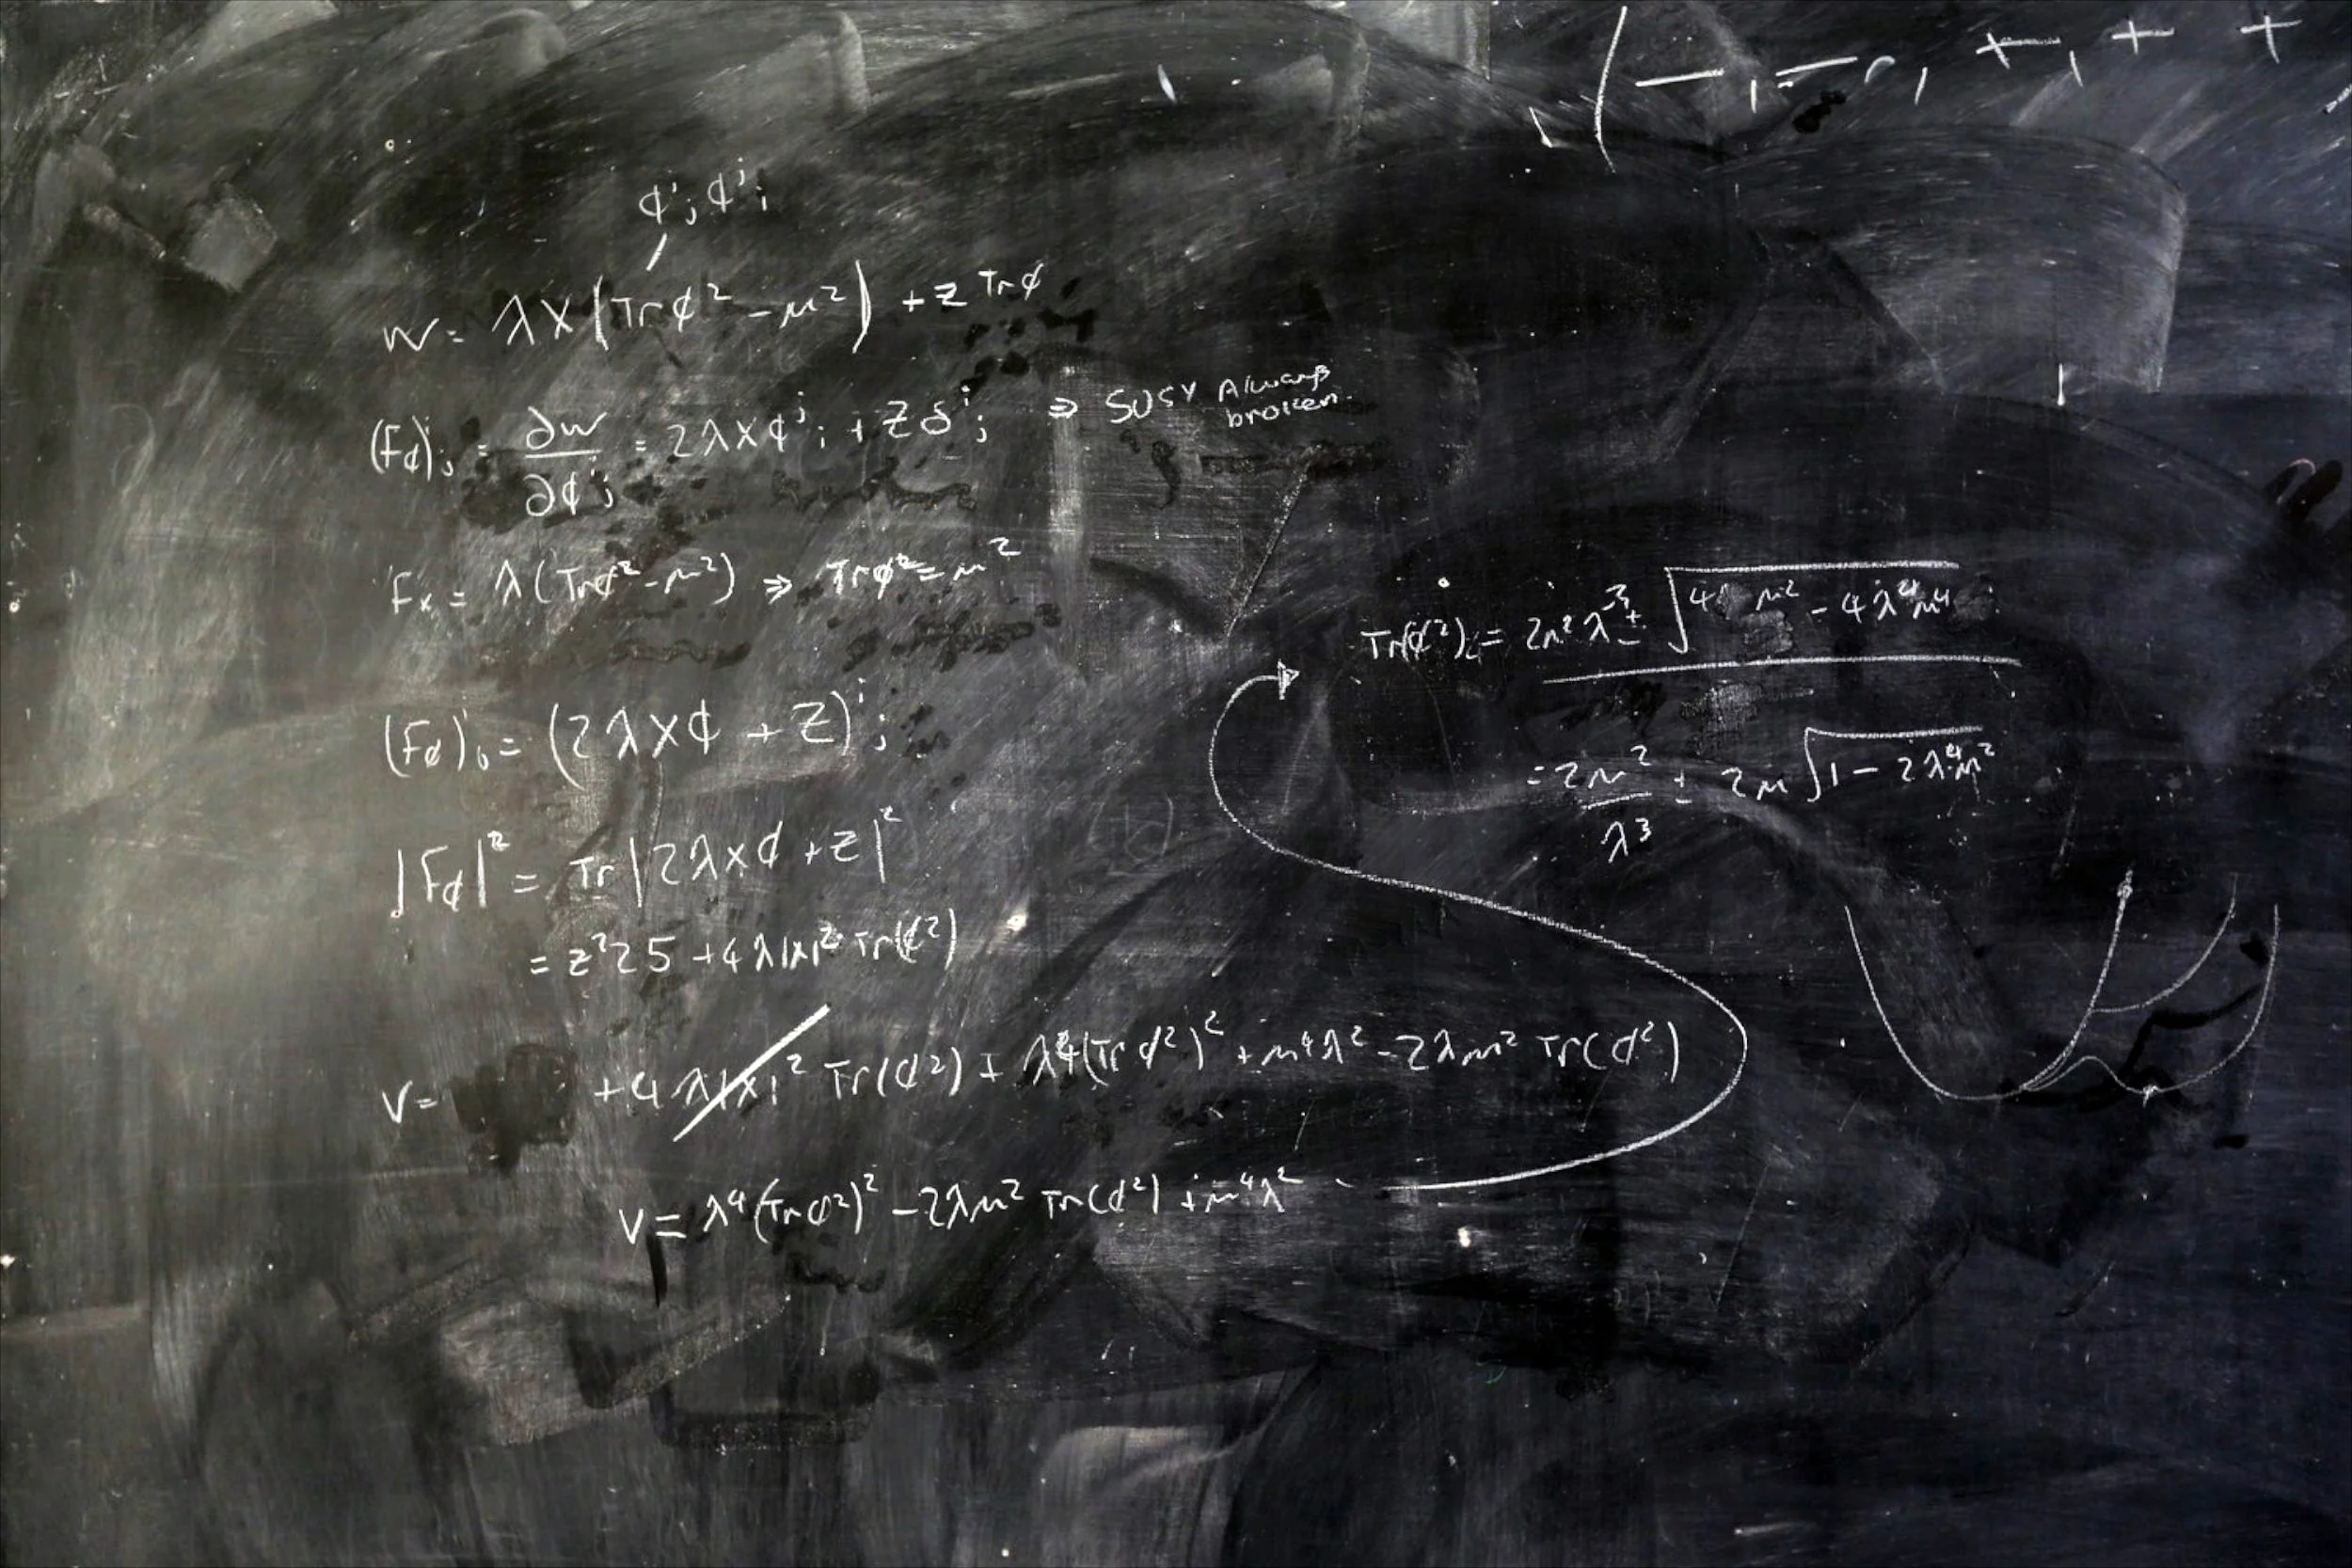 (−, −, +, + +
ϕⁱⱼ ϕʲᵢ
W = λX(Trϕ² − μ²) + Z Trϕ
(Fϕ)ⁱⱼ = ∂W/∂ϕʲᵢ = 2λXϕʲᵢ + Zδʲᵢ ⇒ SUSY Always broken.
Fx = λ(Trϕ² − μ²) ⇒ Trϕ² = μ²
(Fϕ)ⁱⱼ = (2λXϕ + Z)ⁱⱼ
|Fϕ|² = Tr|2λXϕ + Z|²
= Z²25 + 4λ|X|² Tr(ϕ²)
V = + 4λ|X|² Tr(ϕ²) + λ⁴(Trϕ²)² + μ⁴λ² − 2λμ² Tr(ϕ²)
V = λ⁴(Trϕ²)² − 2λμ² Tr(ϕ²) + μ⁴λ²
Tr(ϕ²) = 2μ²λ⁻³ ± √4 μ² − 4λ⁴μ⁴
= 2μ²/λ³ ± 2μ√1 − 2λ⁴μ²